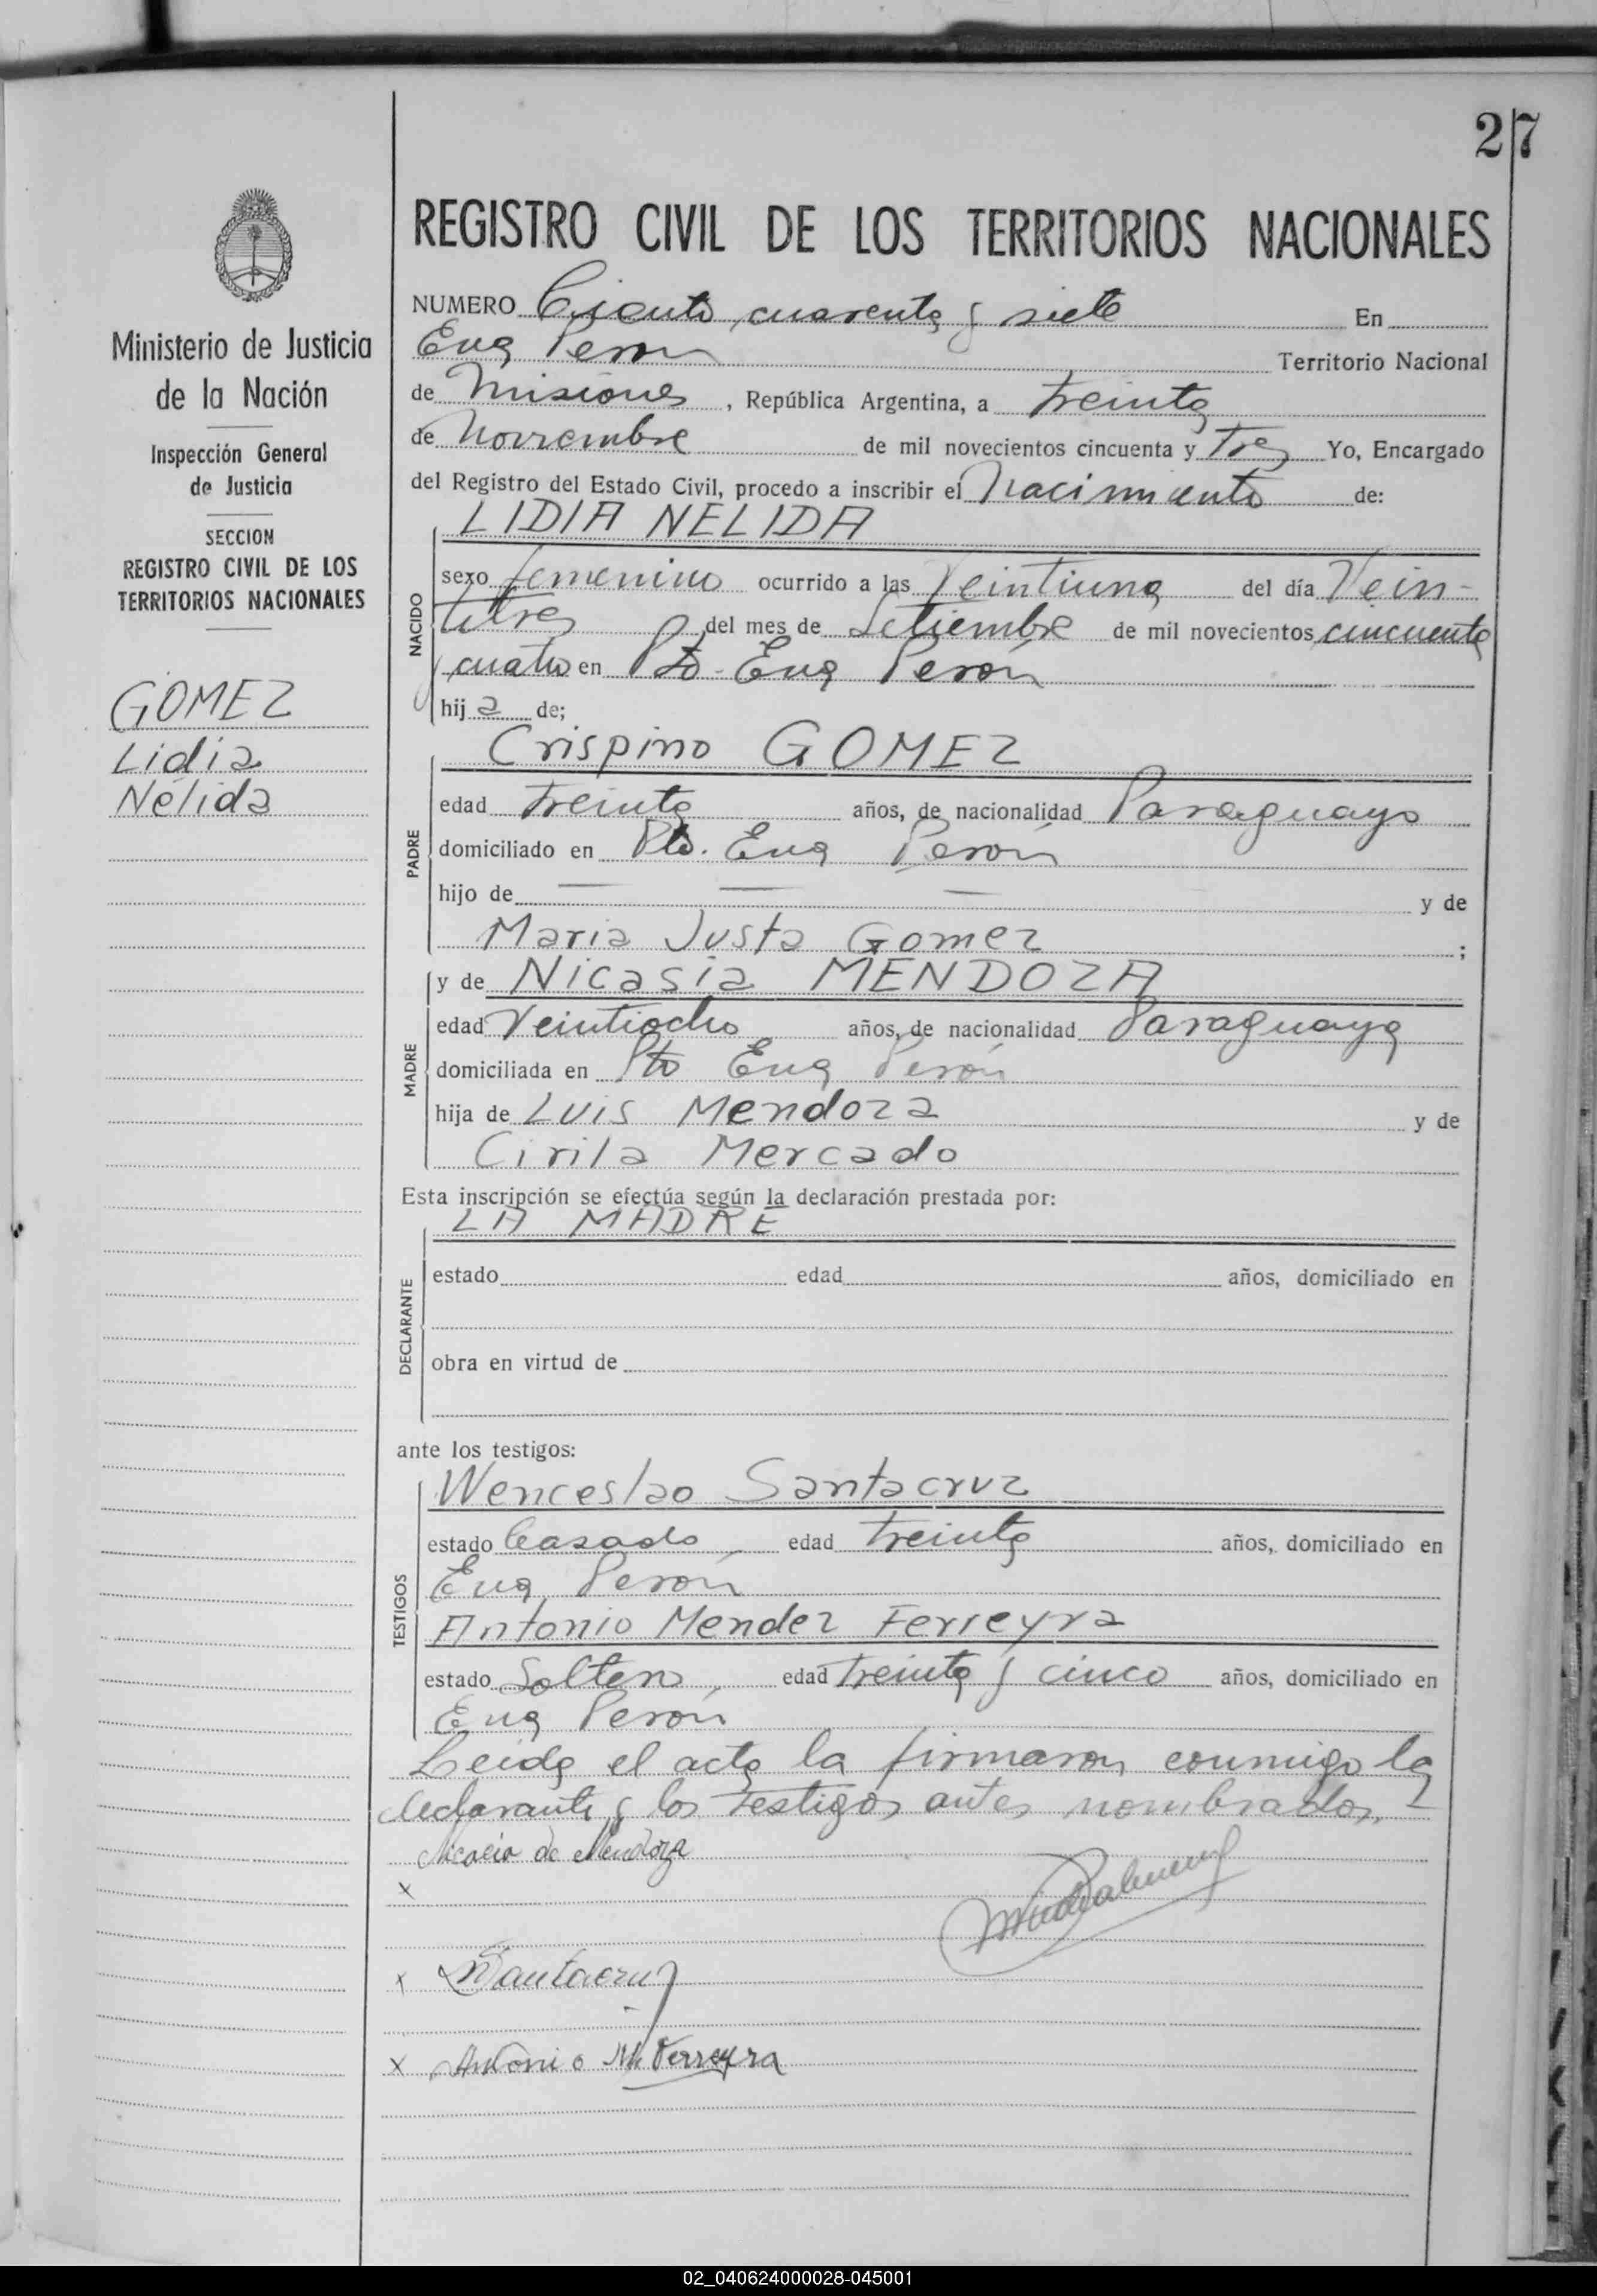 27
REGISTRO CIVIL DE LOS TERRITORIOS NACIONALES
Ministerio de Justicia
de la Nación
Inspección General
de Justicia
SECCION
REGISTRO CIVIL DE LOS
TERRITORIOS NACIONALES
GOMEZ
Lidia
Nélida
NUMERO Ciento cuarenta y siete En
Eva Peron Territorio Nacional
de Misiones, República Argentina, a treinta
de Noviembre de mil novecientos cincuenta y Tres Yo, Encargado
del Registro del Estado Civil, procedo a inscribir el Nacimiento de:
LIDIA NELIDA
NACIDO
sexo femenino ocurrido a las Veintiuna del día Vein-
titres del mes de Setiembre de mil novecientos cincuenta
y cuatro en Pto. Eva Perón
hij a de;
Crispino GOMEZ
PADRE
edad treinta años, de nacionalidad Paraguayo
domiciliado en Pto. Eva Perón
hijo de — — — y de
Maria Justa Gomez ;
y de Nicasia MENDOZA
MADRE
edad Veintiocho años, de nacionalidad Paraguaya
domiciliada en Pto Eva Perón
hija de Luis Mendoza y de
Cirila Mercado
Esta inscripción se efectúa según la declaración prestada por:
LA MADRE
DECLARANTE
estado edad años, domiciliado en
obra en virtud de
ante los testigos:
Wenceslao Santacruz
TESTIGOS
estado Casado, edad treinta años, domiciliado en
Eva Perón
Antonio Mendez Ferreyra
estado Soltero, edad treinta y cinco años, domiciliado en
Eva Perón
Leida el acta la firmaron conmigo la
declarante y los testigos antes nombrados.
Nicacia de Mendoza
x
x Santacruz
x Antonio M. Ferreyra
02_040624000028-045001